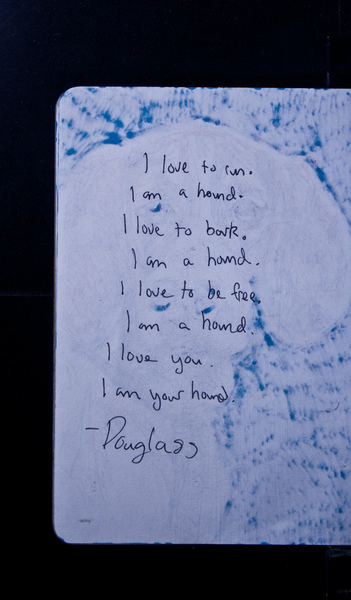 I love to run.
I am a hound.
I love to bark.
I am a hound.
I love to be free.
I am a hound.
I love you.
I am your hound.
- Douglass